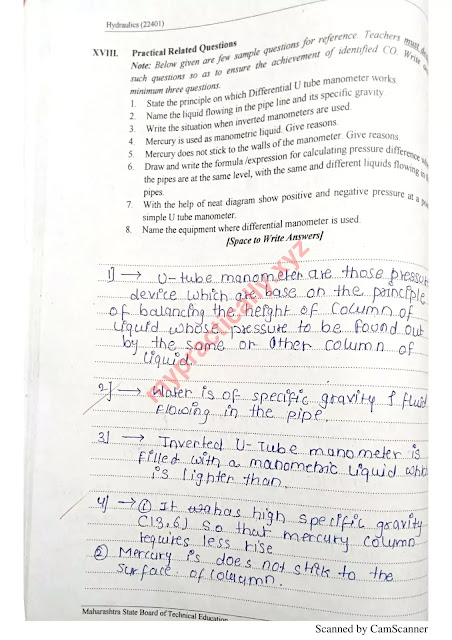 Hydraulics (22401)
XVIII. Practical Related Questions
Note: Below given are few sample questions for reference. Teachers must
such questions so as to ensure the achievement of identified CO. Write
minimum three questions.
1. State the principle on which Differential U tube manometer works.
2. Name the liquid flowing in the pipe line and its specific gravity
3. Write the situation when inverted manometers are used.
4. Mercury is used as manometric liquid. Give reasons.
5. Mercury does not stick to the walls of the manometer. Give reasons.
6. Draw and write the formula /expression for calculating pressure difference
the pipes are at the same level, with the same and different liquids flowing in
pipes.
7. With the help of neat diagram show positive and negative pressure at a
simple U tube manometer.
8. Name the equipment where differential manometer is used.
[Space to Write Answers]
1) → U-tube manometer are those pressure
device which are base on the principle
of balancing the height of column of
liquid whose pressure to be found out
by the same or other column of
liquid.
2) → Water is of specific gravity 1 fluid
flowing in the pipe.
3) → Inverted U-Tube manometer is
filled with a manometric liquid which
is lighter than.
4) → ① It has high specific gravity
(13.6) so that mercury column
requires less rise
② Mercury is does not stick to the
surface of column.
mypractically.xyz
Maharashtra State Board of Technical Education
Scanned by CamScanner